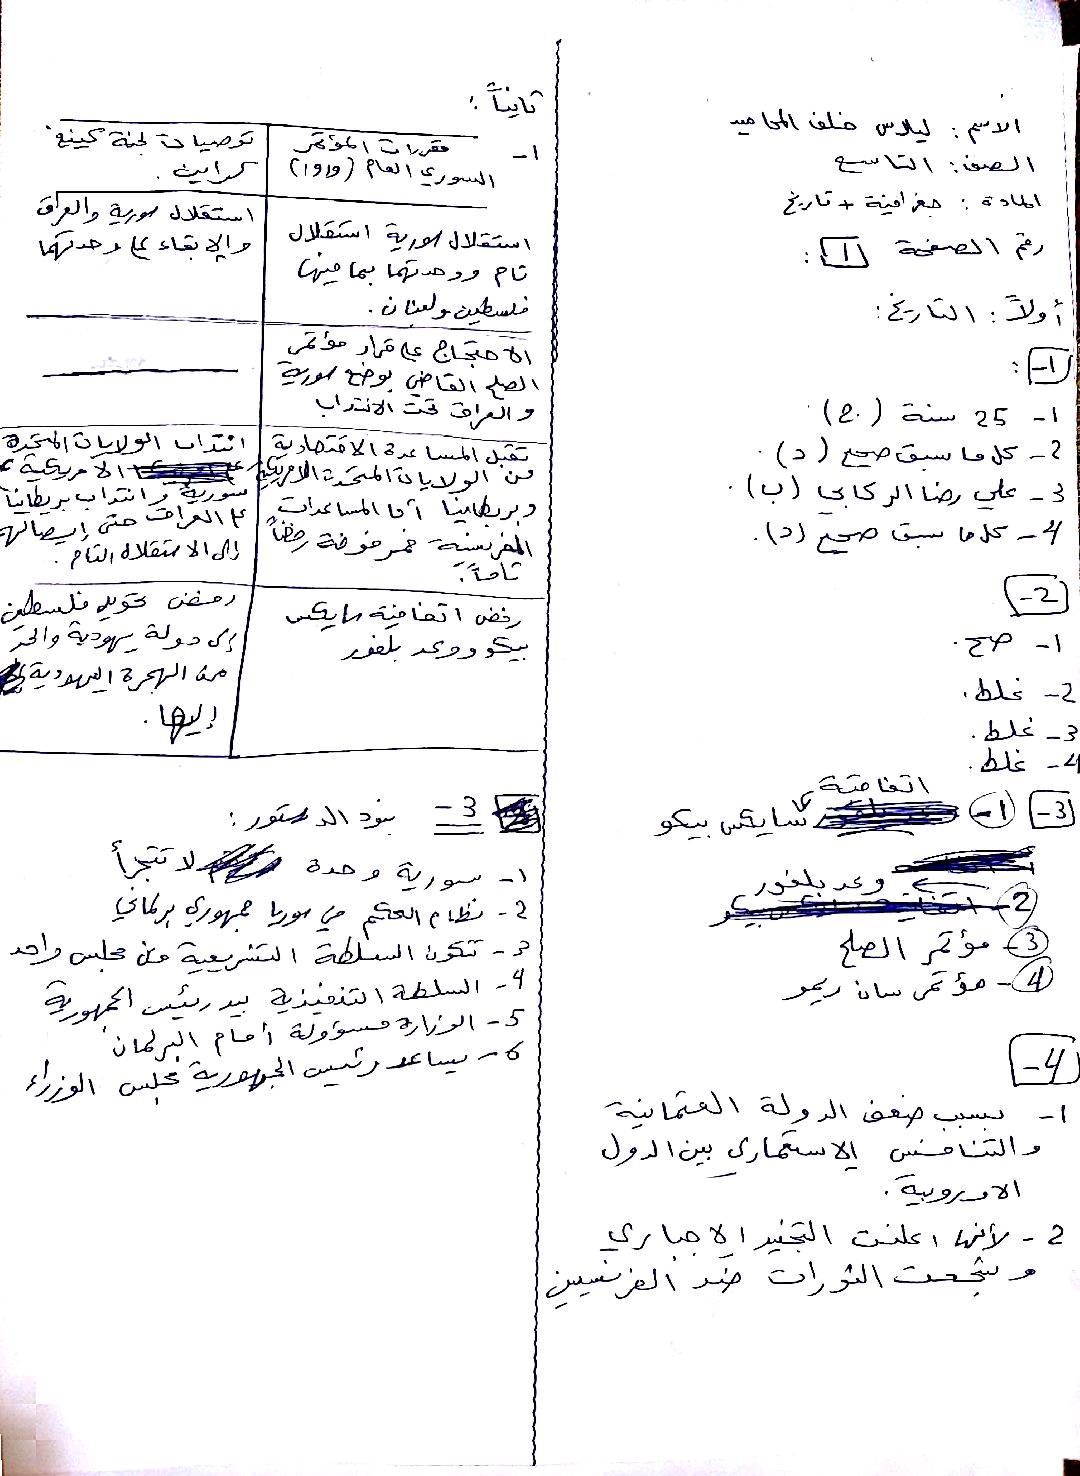 الاسم: ليلاس خلف المحاميد
الصف: التاسع
المادة: جغرافية + تاريخ
رقم الصفحة 1:
أولاً: التاريخ:
1-:
1- 25 سنة (ج).
2- كل ما سبق صحيح (د).
3- علي رضا الركابي (ب).
4- كل ما سبق صحيح (د).
2-
1- صح.
2- غلط.
3- غلط.
4- غلط.
3- 1- اتفاقية سايكس بيكو
2- وعد بلفور
3- مؤتمر الصلح
4- مؤتمر سان ريمو
4-
1- بسبب ضعف الدولة العثمانية
والتنافس الاستعماري بين الدول
الاوروبية.
2- لأنها اعلنت التجنيد الاجباري
وشجعت الثورات ضد الفرنسيين
ثانياً:
1-
مقررات المؤتمر
السوري العام (1919)
توصيات لجنة كينغ
كراين.
استقلال سورية استقلال
تام ووحدتها بما فيها
فلسطين ولبنان.
استقلال سورية والعراق
والإبقاء على وحدتهما
الاحتجاج على قرار مؤتمر
الصلح القاضي بوضع سورية
والعراق تحت الانتداب
تقبل المساعدة الاقتصادية
من الولايات المتحدة الامريكية
وبريطانيا أما المساعدات
الفرنسية فمرفوضة رفضاً
تاماً.
انتداب الولايات المتحدة
الامريكية على
سورية وانتداب بريطانيا
على العراق حتى إيصالها
إلى الاستقلال التام.
رفض اتفاقية سايكس
بيكو ووعد بلفور
رفض تحويل فلسطين
إلى دولة يهودية والحد
من الهجرة اليهودية
إليها.
3- بنود الدستور:
1- سورية وحدة لا تتجزأ
2- نظام الحكم في سوريا جمهوري برلماني
3- تتكون السلطة التشريعية من مجلس واحد
4- السلطة التنفيذية بيد رئيس الجمهورية
5- الوزارة مسؤولة أمام البرلمان
6- يساعد رئيس الجمهورية مجلس الوزراء